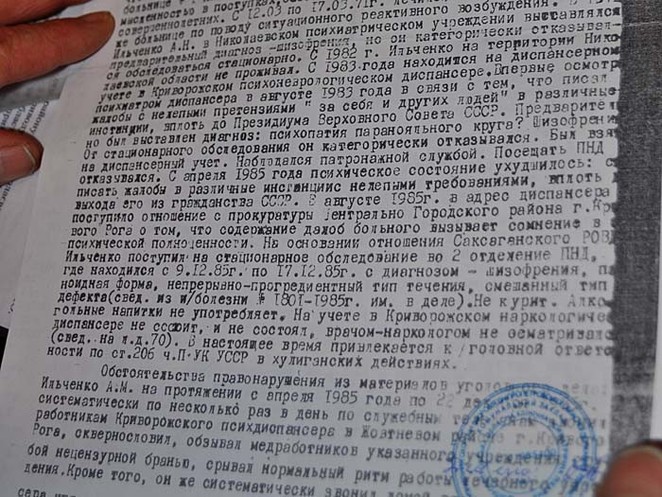 больнице
мысленность в поступках,
совершеннолетних. С 12.03 по 17.03.71г.
же больнице по поводу ситуационного реактивного возбуждения. В
Ильченко А.Н. в Николаевском психиатрическом учреждении выставлялся
предварительный диагноз -шизофрения, но он категорически отказывал-
ся обследоваться стационарно. С 1982 г. Ильченко на территории Нико-
лаевской области не проживал. С 1983 года находится на диспансерном
учете в Криворожском психоневрологическом диспансере. Впервые осмотр
психиатром диспансера в августе 1983 года в связи с тем, что писал
жалобы с нелепыми претензиями " за себя и других людей" в различные
инстанции, вплоть до Президиума Верховного Совета СССР. Предварител
но был выставлен диагноз: психопатия паранояльного круга? Шизофрени
От стационарного обследования он категорически отказывался. Был взя
на диспансерный учет. Наблюдался патронажной службой. Посещать ПНД
отказывался. С апреля 1985 года психическое состояние ухудшилось: с
писать жалобы в различные инстанциис нелепыми требованиями, вплоть
выхода его из гражданства СССР. В августе 1985г. в адрес диспансера
поступило отношение с прокуратуры Центрально Городского района г.Кри
вого Рога о том, что содержание жалоб больного вызывает сомнение в
психической полноценности. На основании отношения Саксаганского РОВД
Ильченко поступил на стационарное обследование во 2 отделение ПНД,
где находился с 9.12.85г. по 17.12.85г. с диагнозом - шизофрения, па
ноидная форма, непрерывно-прогредиентный тип течения, смешанный тип
дефекта(свед. из и/болезни № 1801-1985г. им. в деле).Не курит. Алко
гольные напитки не употребляет. На учете в Криворожском наркологиче
диспансере не состоит, и не состоял, врачом-наркологом не осматривалс
(свед. на л.д.70). В настоящее время привлекается к уголовной ответс
ности по ст.206 ч.П УК УССР в хулиганских действиях.
Обстоятельства правонарушения из материалов
Ильченко А.М. на протяжении с апреля 1985 года по 22
систематически по несколько раз в день по служебным
работникам Криворожского психдиспансера в Жовтневом районе г.
Рога, сквернословил, обзывал медработников указанного учреждения
бой нецензурной бранью, срывал нормальный ритм работы лечебного
дения.Кроме того, он же систематически звонил